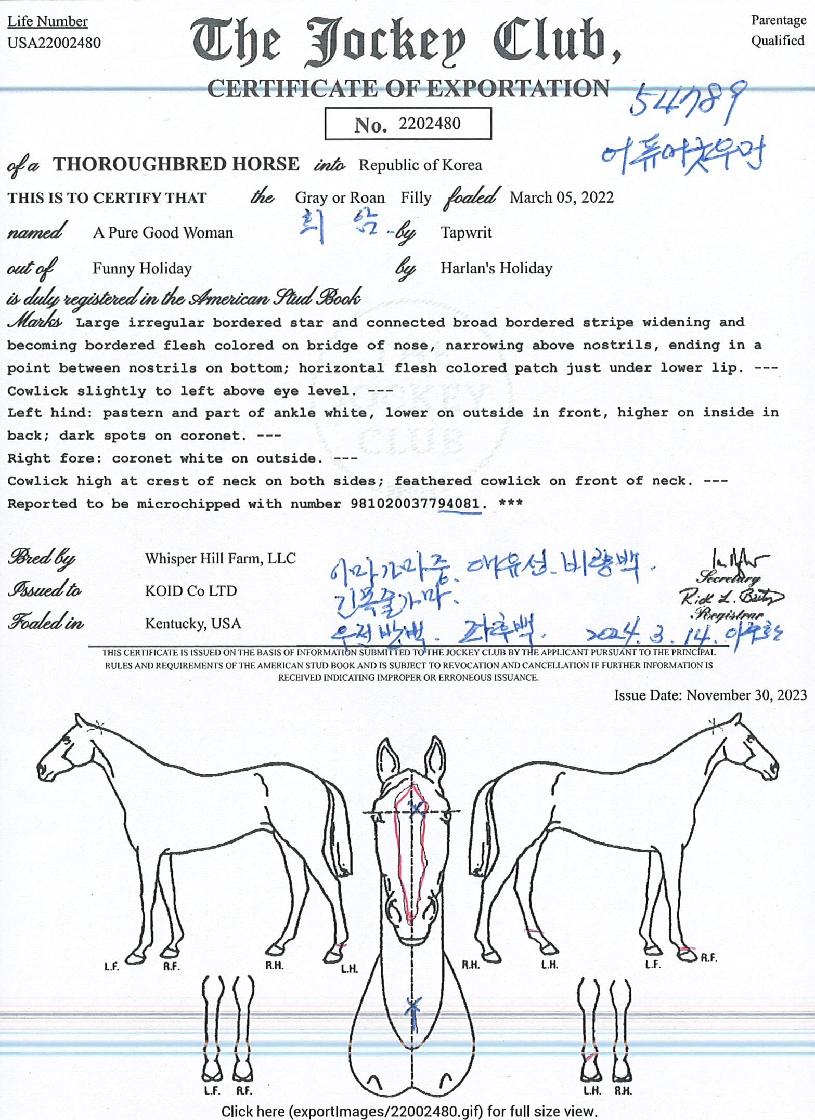 Life Number
USA22002480
The Jockey Club,
Parentage
Qualified
CERTIFICATE OF EXPORTATION
54789
No. 2202480
어퓨어굿우먼
of a THOROUGHBRED HORSE into Republic of Korea
THIS IS TO CERTIFY THAT the Gray or Roan Filly foaled March 05, 2022
회 암
named A Pure Good Woman by Tapwrit
out of Funny Holiday by Harlan's Holiday
is duly registered in the American Stud Book
THE JOCKEY CLUB
Marks Large irregular bordered star and connected broad bordered stripe widening and
becoming bordered flesh colored on bridge of nose, narrowing above nostrils, ending in a
point between nostrils on bottom; horizontal flesh colored patch just under lower lip. ---
Cowlick slightly to left above eye level. ---
Left hind: pastern and part of ankle white, lower on outside in front, higher on inside in
back; dark spots on coronet. ---
Right fore: coronet white on outside. ---
Cowlick high at crest of neck on both sides; feathered cowlick on front of neck. ---
Reported to be microchipped with number 981020037794081. ***
Bred by Whisper Hill Farm, LLC
이마가마중. 대유선. 비량백.
Secretary
Issued to KOID Co LTD
긴목줄가마.
Registrar
Foaled in Kentucky, USA
좌후백. 2024. 3. 14.
THIS CERTIFICATE IS ISSUED ON THE BASIS OF INFORMATION SUBMITTED TO THE JOCKEY CLUB BY THE APPLICANT PURSUANT TO THE PRINCIPAL
RULES AND REQUIREMENTS OF THE AMERICAN STUD BOOK AND IS SUBJECT TO REVOCATION AND CANCELLATION IF FURTHER INFORMATION IS
RECEIVED INDICATING IMPROPER OR ERRONEOUS ISSUANCE.
Issue Date: November 30, 2023
L.F. R.F. R.H. L.H. R.H. L.H. L.F. R.F.
L.F. R.F. L.H. R.H.
Click here (exportImages/22002480.gif) for full size view.